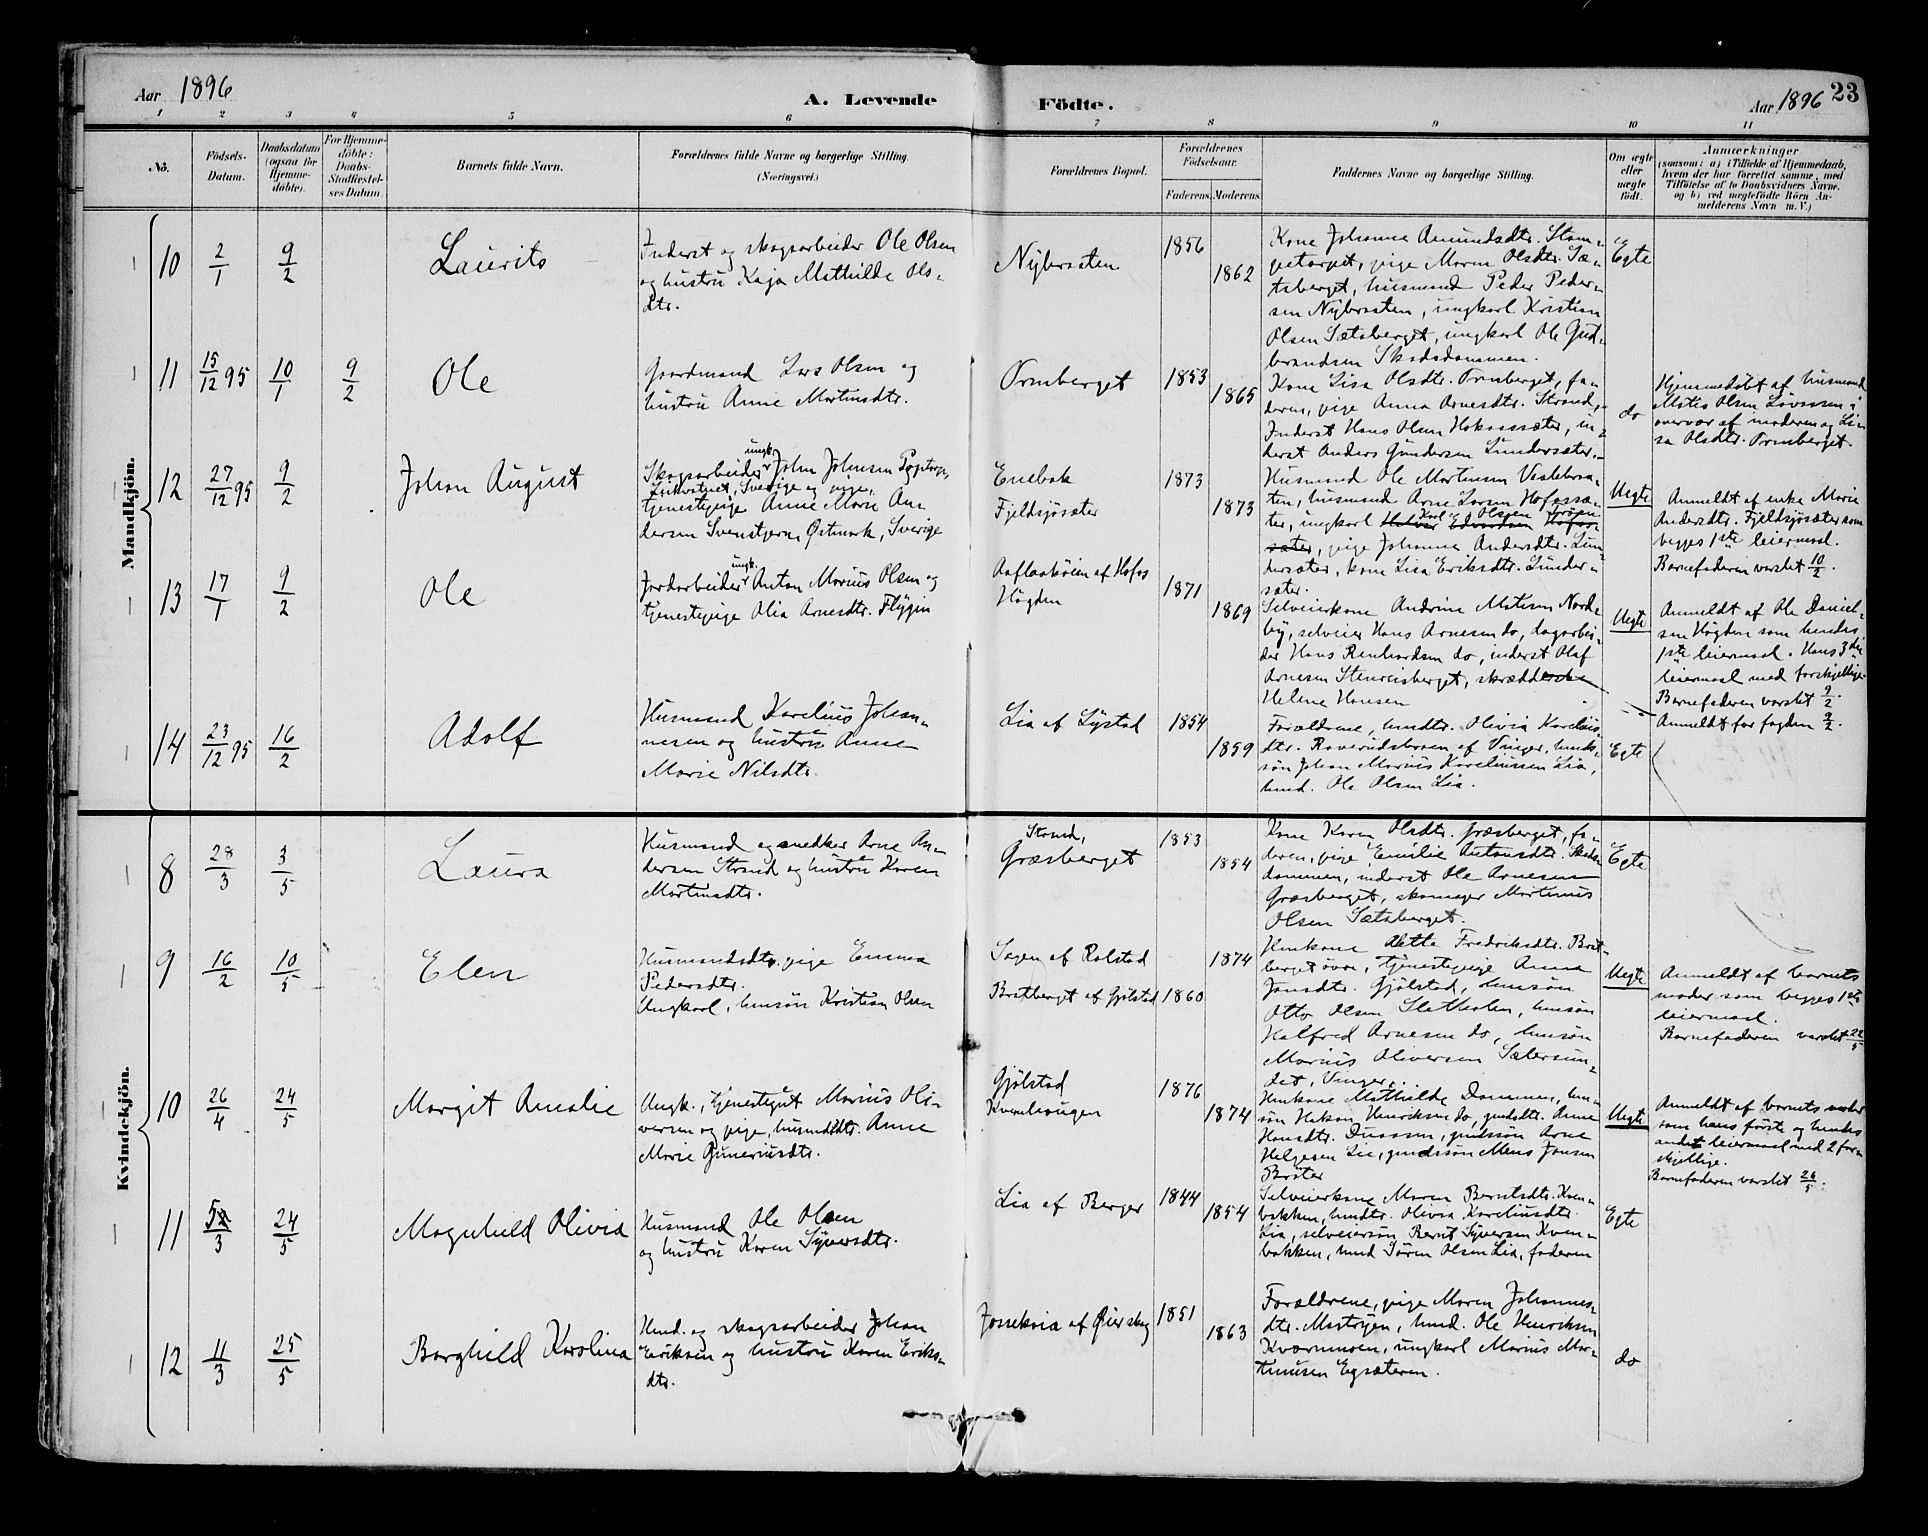 Aar 1896
A. Levende
Födte.
Aar 1896
23
1 2 3 4 5 6 7 8 9 10 11
Nö.
Födsels-
Datum.
Daabsdatum
(ogsaa for
Hjemme-
döbte).
For Hjemme-
döbte:
Daabs-
Stadfestel-
ses Datum.
Barnets fulde Navn.
Forældrenes fulde Navne og borgerlige Stilling.
(Næringsvei.)
Forældrenes Bopæl.
Forældrenes
Födselsaar.
Faderens. Moderens.
Faddernes Navne og borgerlige Stilling.
Om ægte
eller
uægte
födt.
Anmærkninger
(saasom: a) i Tilfælde af Hjemmedaab,
hvem der har forrettet samme, med
Tilföielse af to Daabsvidners Navne.
og b) ved uægtefödte Börn An-
melderens Navn m. V.)
Mandkjön.
10
2/1
9/2
Laurits
Inderst og skogsarbeider Ole Olsen
og hustru Kaja Mathilde Ols-
dtr.
Nybraaten
1856
1862
Kone Johanne Amundsdtr. Stom-
petorpet, pige Maren Olsdtr. Sæ-
tsberget, husmand Peder Peder-
sen Nybraaten, ungkarl Kristian
Olsen Sætsberget, ungkarl Ole Gud-
brandsen Skadsdammen.
Egte
11
15/12 95
10/1
9/2
Ole
Gaardmand Lars Olsen og
hustru Anne Martinsdtr.
Ormberget
1853
1865
Kone Lisa Olsdtr. Ormberget, fa-
deren, pige Anna Arnesdtr. Strand,
Inderst Hans Olsen Hokaassæter, in-
derst Anders Gundersen Lundersæter.
do
Hjemmedöbt af husmand
Mats Olsen Lövaasen i
overvær af moderen og Li-
sa Olsdtr. Ormberget.
12
27/12 95
9/2
Johan August
Skogsarbeider ungk. John Johnsen
Sverige og pige,
tjenestepige Anne Marie An-
dersen Svenstjern, Östmark, Sverige
Enebak
Fjeldsjösæter
1873
1873
Husmand Ole Martinsen
ten, husmand Arne Larsen Hofossæ-
ter, ungkarl Karl Olsen
sæter, pige Johanne Andersdtr. Lun-
dersæter, kone Lisa Eriksdtr. Lunder-
sæter.
Uegte
Anmeldt af enke Marie
Andersdtr. Fjeldsjösæter som
begges 1ste leiermaal.
Barnefaderen varslet 10/2.
13
17/1
9/2
Ole
Jordarbeider ungk. Anton Marius Olsen og
tjenestepige Olia Arnesdtr. Flygin
Aaflaaköien af Hofos
Högden
1871
1869
Selveierkone Andrine Matisen Nord-
by, selveier Hans Arnesen do, dagarbei-
der Hans Renhardsen do, inderst Olaf
Arnesen Stenersberget, skrædderske
Helene Hansen
Uegte
Anmeldt af Ole Daniel-
sen Högden som hendes
1ste leiermaal. Hans 3die
leiermaal med forskjellige.
Barnefaderen varslet 9/2.
Anmeldt for fogden 9/2.
14
23/12 95
16/2
Adolf
Husmand Karelius Johan-
nesen og hustru Anne
Marie Nilsdtr.
Lia af Lystad
1854
1859
Forældrene, husdtr. Olivia Karelius-
dtr. Raverudsbraaten af Vinger, hus-
sön Johan Marius Kareliussen Lia,
husd. Ole Olsen Lia.
Egte
Kvindekjön.
8
28/3
3/5
Laura
Husmand og snedker Arne An-
dersen Strand og hustru Karen
Martinsdtr.
Strand,
Græsberget
1853
1854
Kone Karen Olsdtr. Græsberget, fa-
deren, pige Emilie Antonsdtr. Skads-
dammen, inderst Ole Arnesen
Græsberget, skomager Martinus
Olsen Sætsberget.
Egte
9
16/2
10/5
Elen
Husmandsdtr. pige Emma
Pedersdtr.
Ungkarl, hussön Kristian Olsen
Sagen af Rolstad
Bratberget af Gjölstad
1874
1860
Huskone Alette Fredriksdtr. Brat-
berget övre, tjenestepige Anna
Jonsdtr. Gjölstad, hussön
Otto Olsen Sletholen, hussön
Halfred Arnesen do, hussön
Marius Oliversen Sætersun-
det, Vinger.
Uegte
Anmeldt af barnets
moder som begges 1ste
leiermaal.
Barnefaderen varslet 22/5
10
26/4
24/5
Margit Amalie
Ungk., tjenestegut Marius Oli-
versen og pige, husmdsdtr. Anne
Marie Gunneriusdtr.
Gjölstad
Kvernhaugen
1876
1874
Huskone Mathilde Dammen, hus-
sön Hakon Henriksen do, gaardsdtr. Anne
Hansdtr. Dusssen, gaardssön Arne
Helgesen Lie, gaardssön Mens Jonsen
Bröter
Uegte
Anmeldt af barnets moder
som hans förste og hendes
andet leiermaal med 2 for-
skjellige.
Barnefaderen varslet 26/5.
11
5/3
24/5
Magnhild Olivia
Husmand Ole Olsen
og hustru Karen Syversdtr.
Lia af Berger
1844
1854
Selveierkone Maren Berntsdtr. Kven-
bakken, husdtr. Olivia Kareliusdtr.
Lia, selveiersön Bernt Syversen Kven-
bakken, husd Sören Olsen Lia, faderen
Egte
12
11/3
25/5
Borghild Karolina
Husd. og skogsarbeider Johan
Eriksen og hustru Karen Eriks-
dtr.
Jossekoia af Öierskog
1851
1863
Forældrene, pige Maren Johannes-
dtr. Mastryen, husd. Ole Henriksen
Kværnmoen, ungkarl Marius Mar-
tinusen Egsæteren.
do